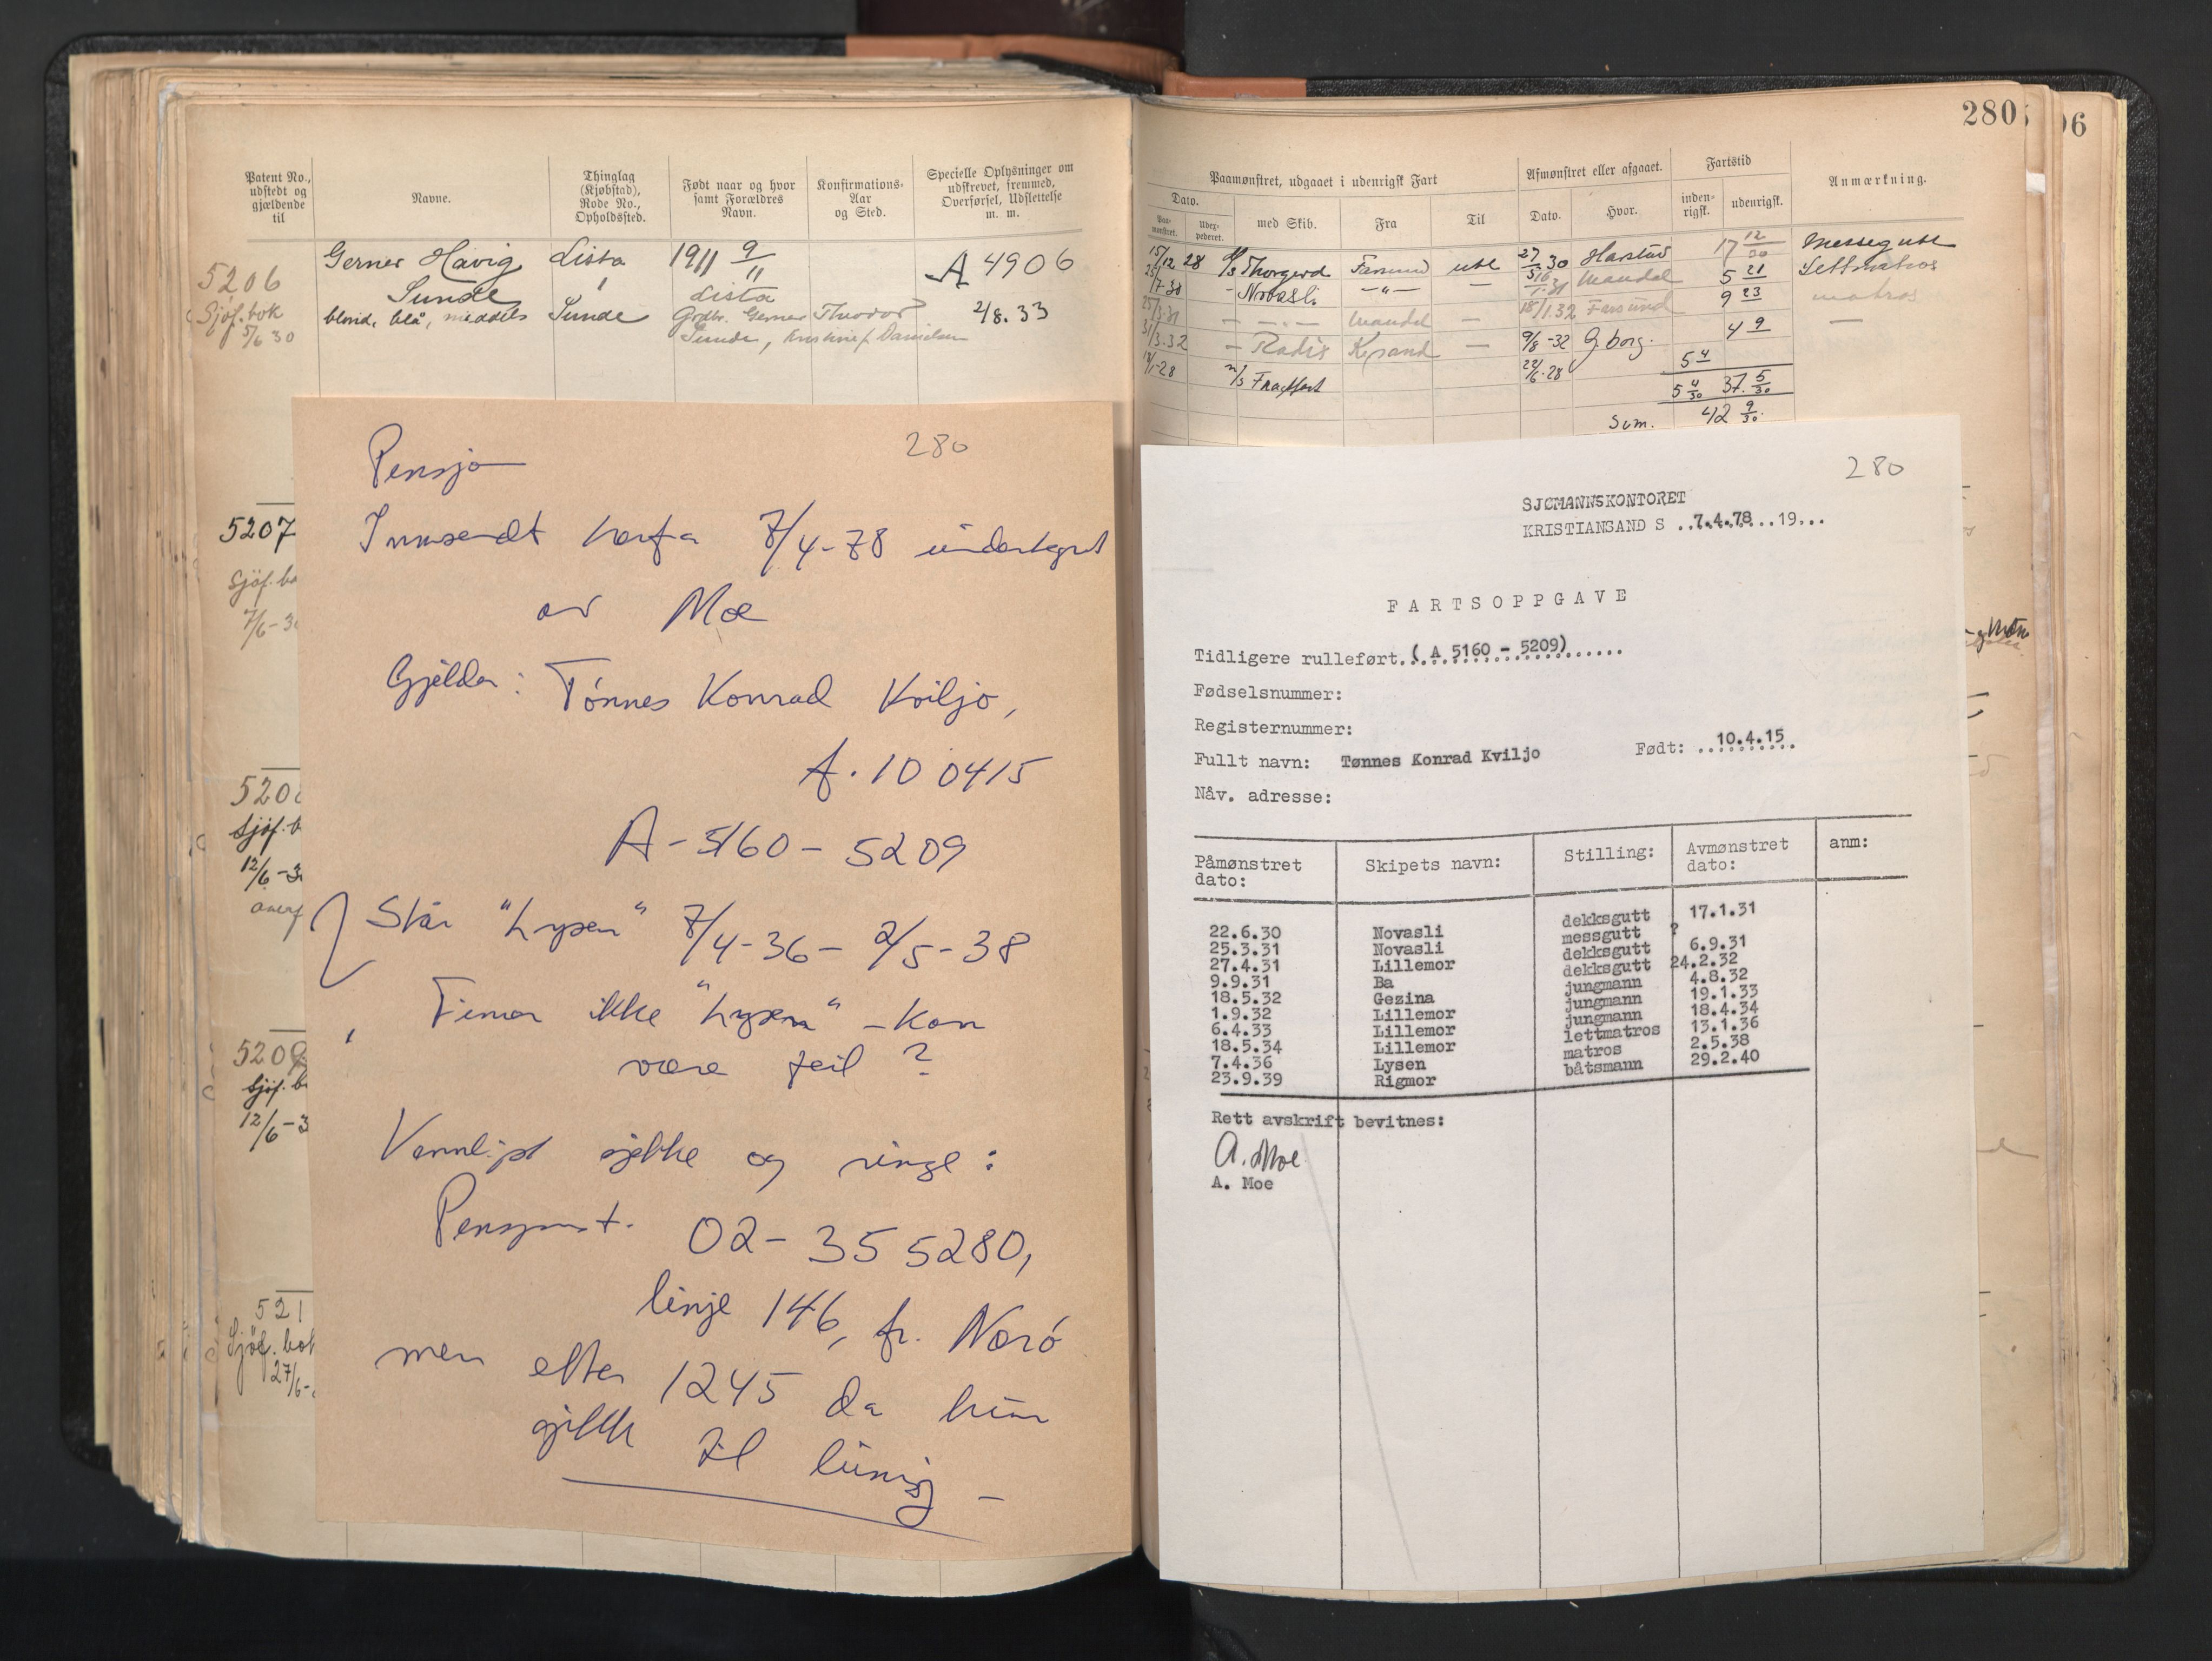 280
06
Patent No., udstedt og gjældende til
Navne.
Thinglag (Kjøbstad), Rode No., Opholdssted.
Født naar og hvor samt Forældres Navn.
Konfirmations-Aar og Sted.
Specielle Oplysninger om udskrevet, fremmed, Overførsel, Udslettelse m. m.
5206
Sjöf. bok
5/6 30
Gerner Havig
Sunde
blond, blå, middels
Lista
Sunde
1911 9/11
Lista
Godbr. Gerner Theodor
Sunde, Kristine f. Danielsen
A 4906
2/8.33
5207
Sjöf. bo
7/6-30
Sjöf. b
12/6-3
overf
5209
Sjöf. b
12/6-3
521
Sjöf. bok
27/6-
Paamønstret, udgaaet i udenrigsk Fart
Afmønstret eller afgaaet.
Fartstid
Anmærkning.
Dato.
Paa-mønstret.
med Skib.
Fra
Til
Dato.
Hvor.
inden-rigsk.
udenrigsk.
15/12 28 Thorgerd Farsund utl 27/5 30 Harstad 17 12/30 Messegutt
Novasli -"- — Mandal 5 21 Lettmatros
25/3.31 — Mandal — 18/1.32 Farsund 9 23 matros
31/3.32 - Radix Krsand — 9/8-32 G.borg. 4 9 —
m/s 22/6.28 5 4
5 4/30 37. 5/30
Sum. 42 9/30.
280
Pensjo
Innsendt herfra 7/4-78 undertegnet
av Moe
Gjelder: Tønnes Konrad Kviljo,
f. 10 0415
A-5160-5209
Står "Lysen" 7/4-36 - 2/5-38
Finner ikke "Lysen" - kan
være feil ?
Vennligst sjekke og ringe:
Pensjonst. 02-355280,
linje 146, fr. Nærø
men etter 1245 da hun
gikk til lunsj —
280
SJØMANNSKONTORET
KRISTIANSAND S ..7.4.78...19...
FARTSOPPGAVE
Tidligere rulleført.(.A 5160 - 5209)......
Fødselsnummer:
Registernummer:
Fullt navn: Tønnes Konrad Kviljo Født: ..10.4.15..
Nåv. adresse:
Påmønstret dato: Skipets navn: Stilling: Avmønstret dato: anm:
22.6.30 Novasli dekksgutt 17.1.31
25.3.31 Novasli messgutt ?
27.4.31 Lillemor dekksgutt 6.9.31
9.9.31 Ba dekksgutt 24.2.32
18.5.32 Gezina jungmann 4.8.32
1.9.32 Lillemor jungmann 19.1.33
6.4.33 Lillemor jungmann 18.4.34
18.5.34 Lillemor lettmatros 13.1.36
7.4.36 Lysen matros 2.5.38
23.9.39 Rigmor båtsmann 29.2.40
Rett avskrift bevitnes:
A. Moe
A. Moe